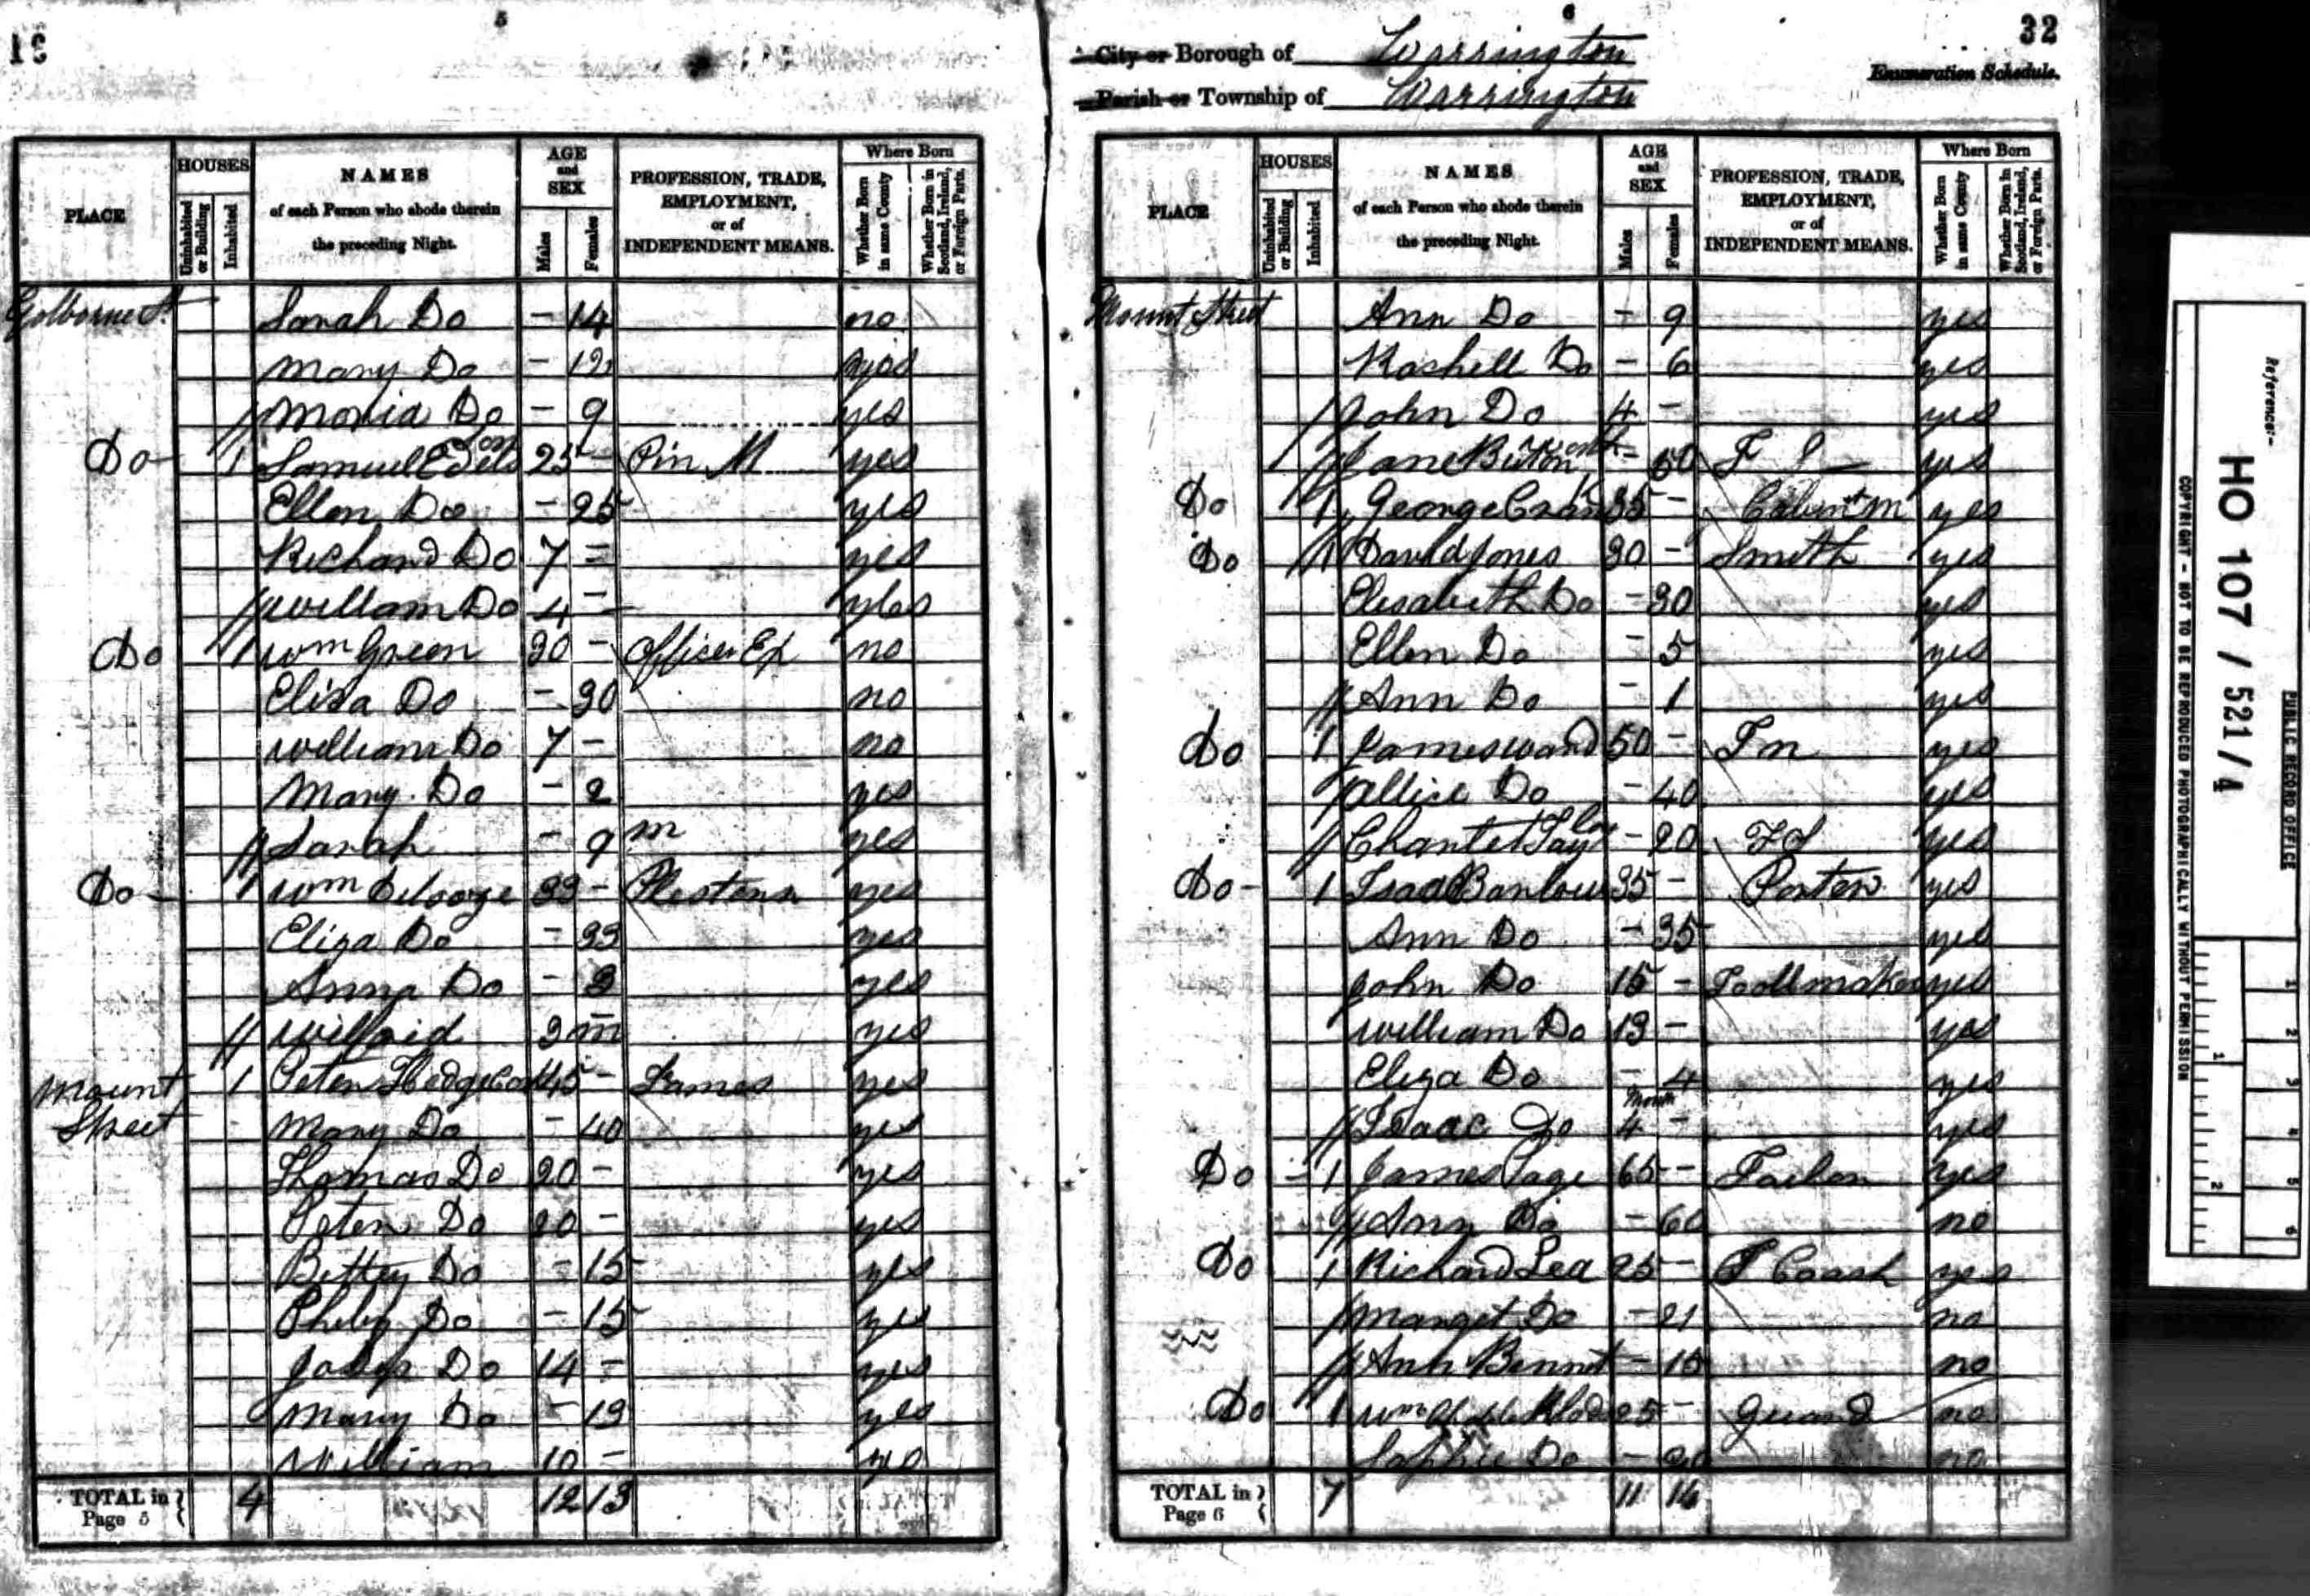 5
PLACE
HOUSES
Uninhabited or Building
Inhabited
NAMES
of each Person who abode therein
the preceding Night.
AGE
and
SEX
Males
Females
PROFESSION, TRADE,
EMPLOYMENT,
or of
INDEPENDENT MEANS.
Where Born
Whether Born in same County
Whether Born in Scotland, Ireland, or Foreign Parts.
Golborne St Sarah Do - 14 no
Mary Do - 12 yes
Moria Do - 9 yes
Do 1 Samuel Edelson 25 - Pin M yes
Ellen Do - 25 yes
Richard Do 7 - yes
William Do 4 - yes
Do 1 Wm Green 30 - Officer Ex no
Elisa Do - 30 no
William Do 7 - no
Mary Do - 2 yes
Sarah - 9 m yes
Do 1 Wm 33 - yes
Eliza Do - 33 yes
Anna Do - 3 yes
3 m yes
Mount Street 1 Peter 45 - yes
Mary Do - 40 yes
Thomas Do 20 - yes
Peter Do 20 - yes
Bettey Do - 15 yes
Pheby Do - 15 yes
Do 14 - yes
Mary Do - 13 yes
William 10 - yes
TOTAL in Page 5 4 12 13
6
32
City or Borough of Warrington
Enumeration Schedule.
Parish or Township of Warrington
PLACE
HOUSES
Uninhabited or Building
Inhabited
NAMES
of each Person who abode therein
the preceding Night.
AGE
and
SEX
Males
Females
PROFESSION, TRADE,
EMPLOYMENT,
or of
INDEPENDENT MEANS.
Where Born
Whether Born in same County
Whether Born in Scotland, Ireland, or Foreign Parts.
Mount Street Ann Do - 9 yes
Rashell Do - 6 yes
John Do 4 - yes
Jane - 50 F S yes
Do 1 George 35 - Cabinet M yes
Do 1 David Jones 30 - Smith yes
Elisabeth Do - 30 yes
Ellen Do - 5 yes
Ann Do - 1 yes
Do 1 James Ward 50 - yes
Allice Do - 40 yes
Taylor - 20 F S yes
Do 1 Isaac Barlow 35 - Porter yes
Ann Do - 35 yes
John Do 15 - Toollmaker yes
William Do 13 - yes
Eliza Do - 4 yes
Isaac Do 4 Month - yes
Do 1 James Page 65 - Tailor yes
Ann Do - 60 no
Do 1 Richard Lea 25 - yes
Marget Do - 21 no
Ann Bennet - 15 no
Do 1 Wm 25 - Guard no
Sophie Do - 20 no
TOTAL in Page 6 7 11 14
Reference:-
HO 107 / 521/4
PUBLIC RECORD OFFICE
COPYRIGHT - NOT TO BE REPRODUCED PHOTOGRAPHICALLY WITHOUT PERMISSION
1
2
3
4
5
6
1
2